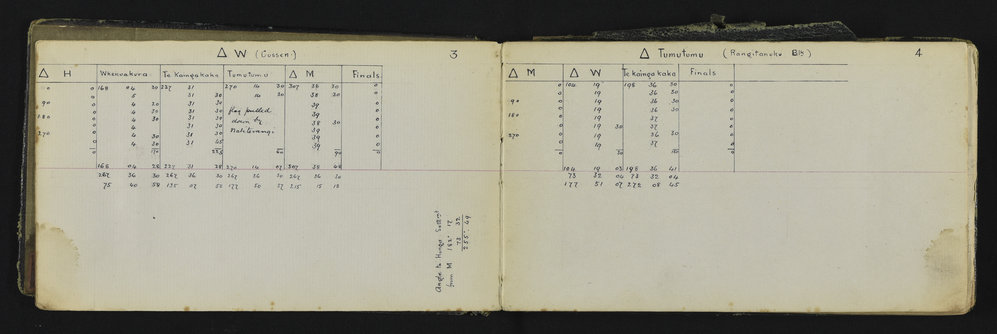 Δ W (Cussen.) 3
Δ H Whenuakura Te Kaingakaka Tumutumu Δ M Finals
0 0 168 04 30 227 31 270 14 30 307 38 30 0
0 5 31 30 14 30 38 30 0
90 0 4 20 31 30 flag pulled 39 0
0 4 30 31 30 39 0
180 0 4 30 31 30 down by 38 30 0
0 4 31 30 39 0
270 0 4 30 31 30 39 0
0 4 30 31 45 39 0
168 04 28 227 31 28 270 14 07 307 38 48
267 36 30 267 36 30 267 36 30 267 36 30
75 40 58 135 07 58 177 50 37 215 15 18
Angle to Hunga Settmt
from M 182° 17
73 32
255° 49
Δ Tumutumu (Rangitanuku Blk) 4
Δ M Δ W Te Kaingakaka Finals
0 104 19 198 36 30 0
0 19 36 30 0
90 0 19 36 30 0
0 19 36 30 0
180 0 19 37 0
0 19 30 37 0
270 0 19 36 30 0
0 19 37 0
104 19 03 198 36 41
73 32 04 73 32 04
177 51 07 272 08 45